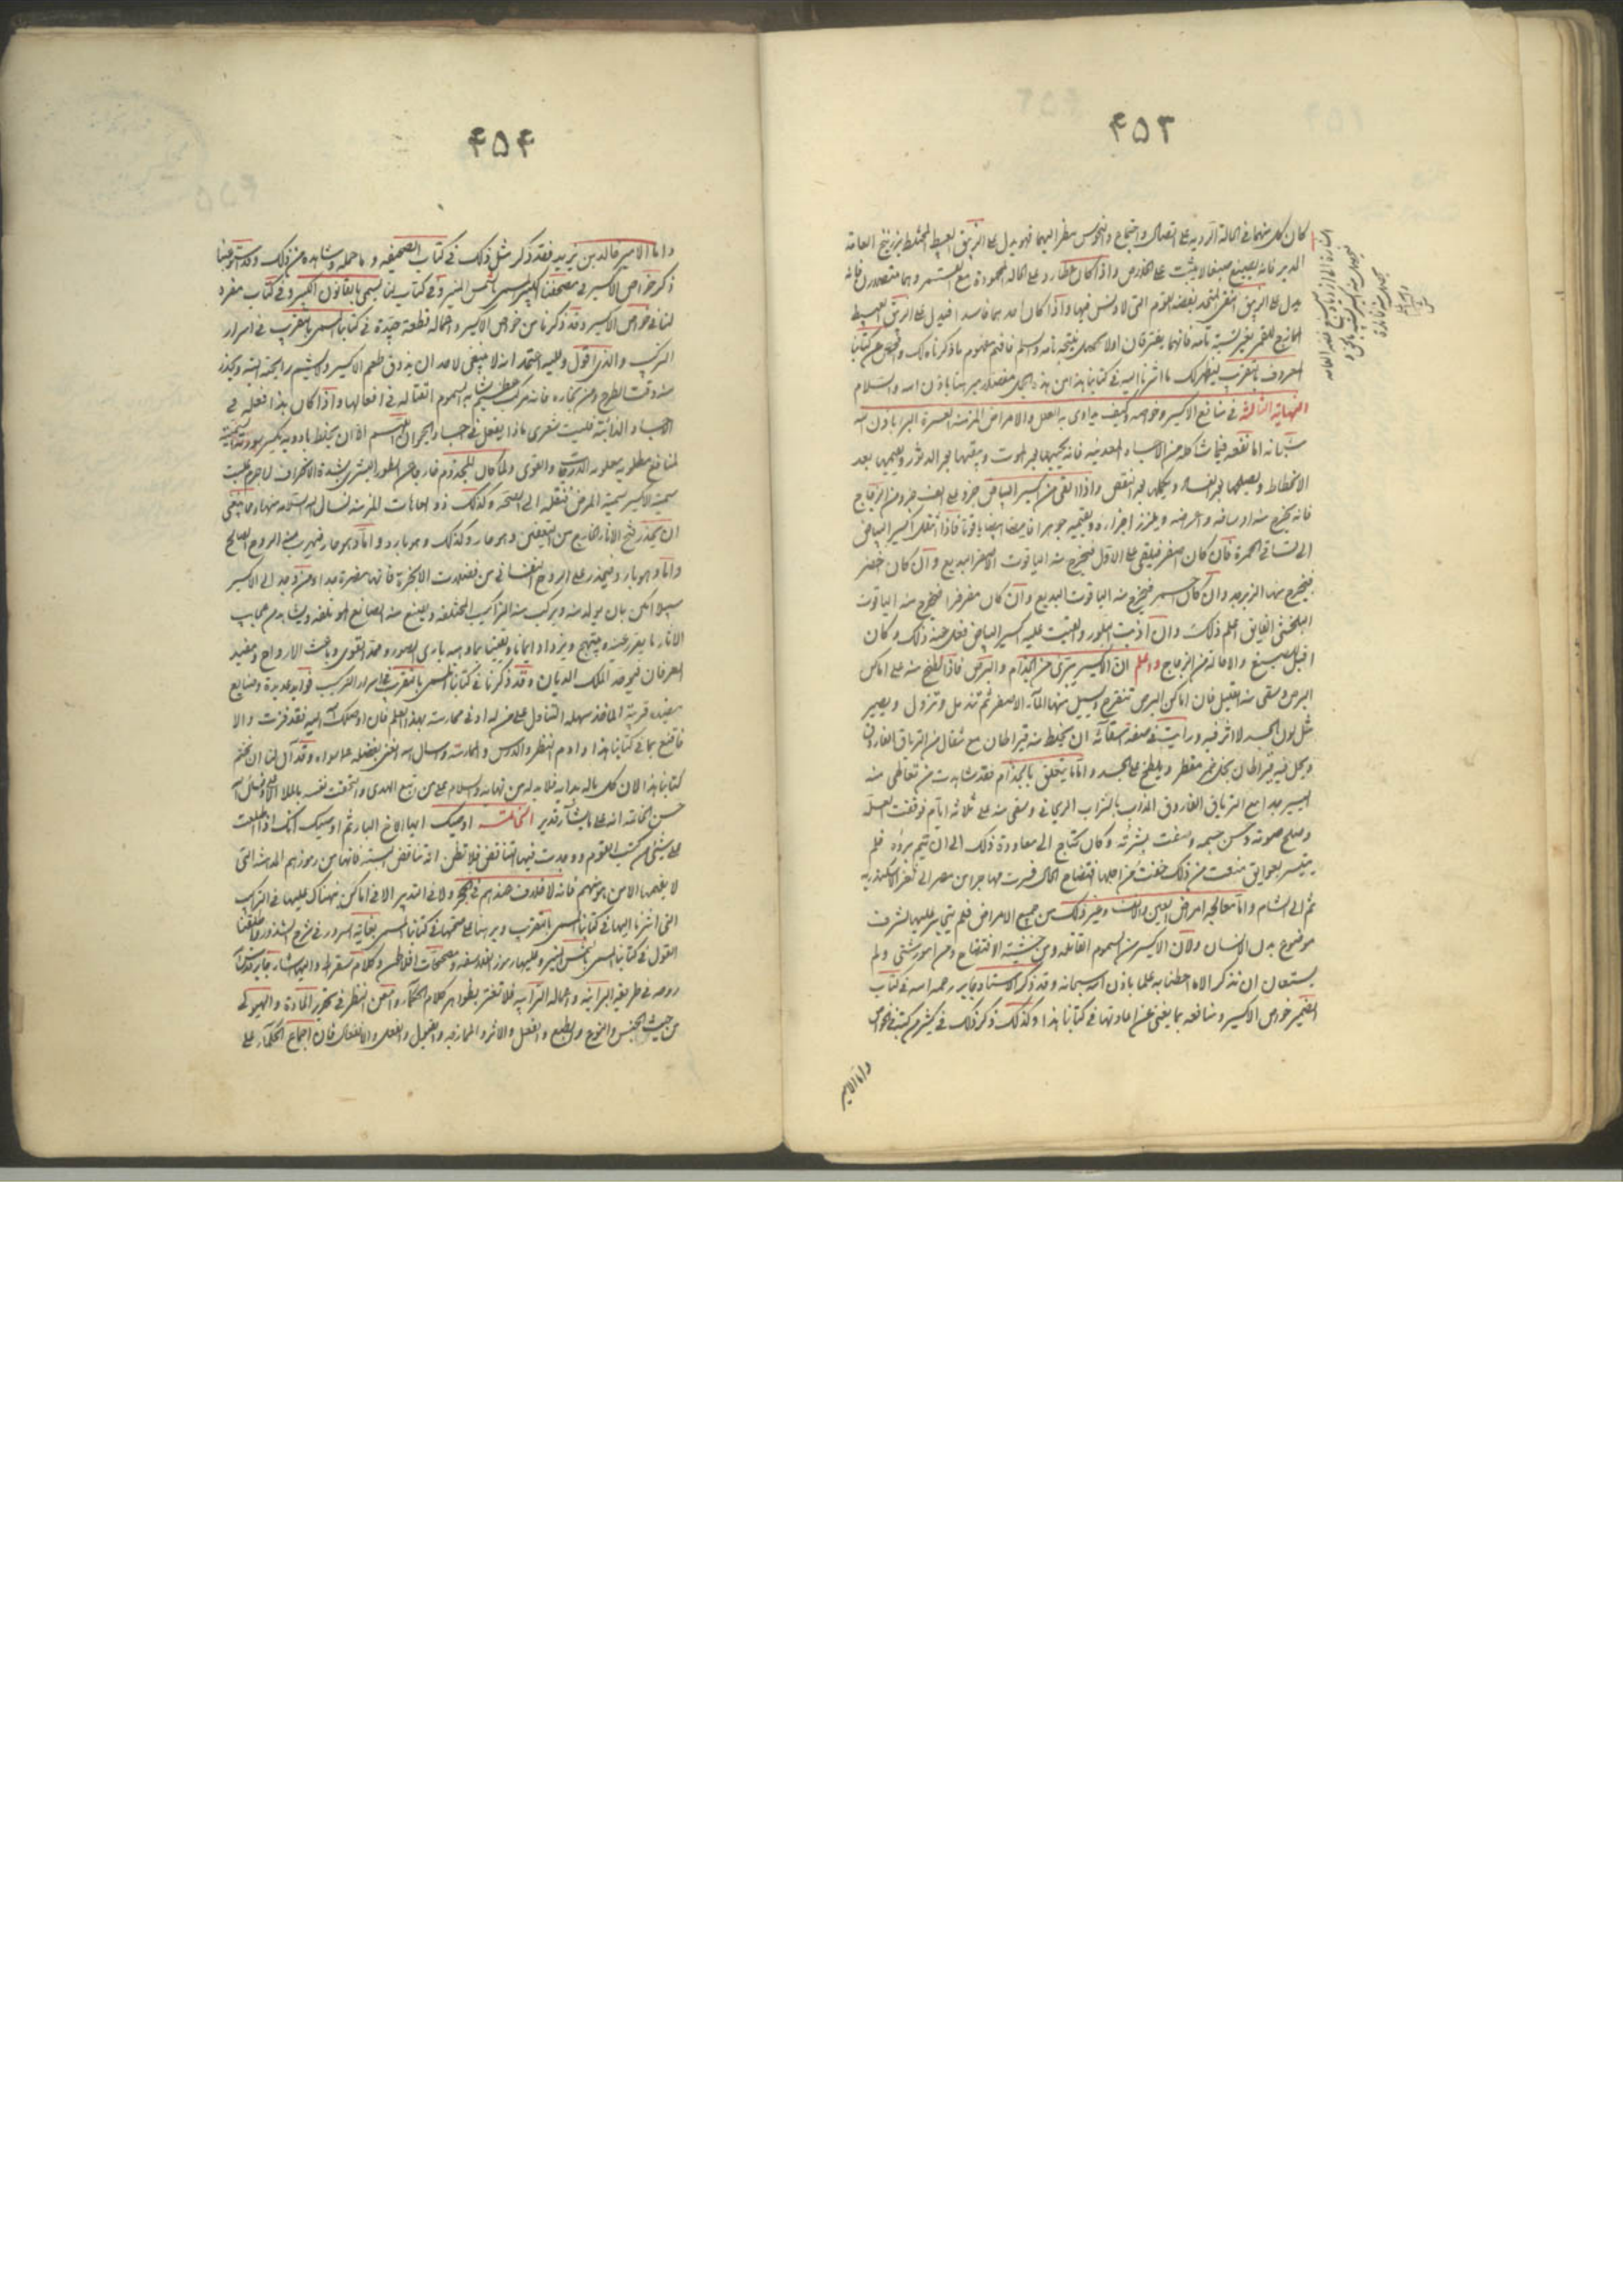 ۴۵۳
كان كل منهما في الحالة الردية على اتصال واجتماع والنحوس ينظر اليهما فهو يدل على الزيبق البسيط المختلط بزرنيخ العامة
فانه يصبغ صبغا لا يثبت على الخلاص واذا كان عطارد على الحالة المحمودة مع القمر وهما متصلان فانه
يدل على الزيبق النقي المتحد ببعضه القوم التي لا دنس فيها واذا كان احدهما فاسدا فيدل على الزيبق البسيط
الممازج للقمر بغير نسبة تامة فانهما يفترقان اولا يحصل نتيجة تامة واسلم فافهم مفهوم ما ذكرناه لك وتفحص عن كتابنا
المعروف بالتقريب ليظهر لك ما اشرنا اليه في كتابنا هذا من هذه الجمل مفصلا مبرهنا باذن الله والسلام
النهاية الثالثة في منافع الاكسير وخواصه وكيف يداوى به العلل والامراض المزمنة العسرة البرء باذن الله
سبحانه اما نفعه فيما شاكله من الاجساد المعدنية فانه يحييها بعد الموت ويبقيها بعد الدثور ويقيمها بعد
الانحطاط ويصلحها بعد الفساد ويكملها بعد النقص واذا القي من اكسير البياض جزو على الف جزو من الزجاج
فانه يخرج منه اوساخه واعراضه ويلزز اجزاءه ويقيمه جوهرا فايضا ابيضا ياقوتا فاذا انتقل اكسير البياض
الى لتساقي الحمرة فان كان اصفر فيلقى على الاول فيخرج منه الياقوت الاصفر البديع وان كان اخضر
فيخرج منها الزبرجد وان كان احمر فيخرج منه الياقوت البديع وان كان مفرفرا فيخرج منه الياقوت
البلخشي الفايق اعلم ذلك وان اذبت البلور والقيت عليه اكسير البياض فعل منه ذلك وكان
اقبل للصبغ والاحالة من الزجاج واعلم ان الاكسير يبرئ من الجذام والبرص فاذا لطخ منه على اماكن
البرص وسقى منه القليل فان اماكن البرص تتقرح ويسيل منها الماء الاصفر ثم تندمل وتزول ويصير
مثل لون الجسد لا اثر فيه ورايت في صفة استعماله ان يخلط منه قيراطان مع مثقال من الترياق الفاروق
ويحل فيه قيراطان بخل خمر مقطر ويلطخ على الجسد واما ما يتعلق بالجذام فقد شاهدت من تعاطى منه
اليسير جدا مع الترياق الفاروق المذاب بالشراب الريحاني وسقى منه على ثلاثة ايام فوقفت العلة
وصلح صوته وحسن جسمه وصفت بشرته وكان يحتاج الى معاودة ذلك الى ان يتم برؤه فلم
يتيسر لعوايق منعت من ذلك خفت من اجلها افتضاح الحال فسرت مهاجرا من مصر الى ثغر الاسكندرية
ثم الى الشام واما معالجة امراض العين والانف وغير ذلك من جميع الامراض فلم يتجاسر عليها لشرف
موضوع بدن الانسان ولان الاكسير من السموم القاتلة ومن خشية الافتضاح ومن امور شتى ولم
يستعان ان نذكر الا ما احطنا به علما باذن الله سبحانه وقد ذكر الاستاد جابر رحمه الله في كتاب
الضمير خواص الاكسير ومنافعه بما يغني عن اعادتها في كتابنا هذا وكذلك ذكر ذلك في كثير من كتبه في الخواص
واما الامير
۴۵۴
واما الامير خالد بن يزيد فقد ذكر مثل ذلك في كتاب الصحيفة وما حمله وشاهده من ذلك وقد استوفينا
ذكر خواص الاكسير في مصحفنا الكبير المسمى بالشمس المنير وفي كتاب لنا يسمى بالقانون الكبير وفي كتاب مفرد
لنا في خواص الاكسير وقد ذكرنا من خواص الاكسير واعماله قطعة جيدة في كتابنا المسمى بالتقريب في اسرار
التركيب والذي اقول وعليه اعتمد انه لا ينبغي لاحد ان يذوق طعم الاكسير ولا يشم رايحته البتة ويحذر
منه وقت الطرح ومن بخاره فانه مركب عظيم يشابه السموم القتالة في افعالها واذا كان هذا فعله في
الاجساد الذائبة فليت شعري ماذا يفعل في اجساد الحيوان اللهم الا ان يختلط بادوية يكسر سورته المميتة
لمنافع مطلوبة معلومة الدرجات والقوى ولما كان المجذوم خارجا عن الطور البشري بشدة الانحراف لا جرم غلبت
سمية الاكسير سمية المرض فنقله الى الصحة وكذلك ذو العاهات المزمنة نسال الله السلامة منها وما ينبغي
ان يحذر فتح الاناء الخارج من التعفين وهو حار وكذلك وهو بارد واما وهو حار فيهرب منه الروح الصالح
واما وهو بارد فيحذر على الروح النفساني من فضلات الابخرة فانها مضرة جدا ومن وجد الى الاكسير
سبيلا امكن بان يولد منه ويركب منه التراكيب المختلفة ويصنع منه الصنايع المؤتلفة ويشاهد من عجايب
الاثار ما يقرر عينه ويبتهج ويزداد ايمانا ويقينا بما اوهبه باري الصور ومد القوى وباعث الارواح ومفيد
العرفان فيوحد الملك الديان وقد ذكرنا في كتابنا المسمى بالتقريب في اسرار التركيب فوايد عديدة وصنايع
مفيدة قريبة الماخذ سهلة التناول على من له ادنى ممارسة بهذا العلم فان اوصلك الله اليه فقد فزت والا
فاقنع بما في كتابنا هذا وادم النظر والدرس والممارسة وسال الله الغنى بفضله عما سواه وقد آن لنا ان نختم
كتابنا هذا الان كل ماله بداية فلا بد له من نهاية والسلام على من اتبع الهدى والتحقت نفسه بالملا الاعلى ونسال الله
حسن الخاتمة انه على ما يشاء قدير الخاتمة اوصيك ايها الاخ البار ثم اوصيك انك اذا اطلعت
على شيئ من كتب القوم ووجدت فيها التناقض فلا تظن انه تناقض البتة فانها من رموزهم المدهشة التي
لا يفهمها الا من هو منهم فانه لا خلاف عندهم في الحجر ولا في التدبير الا في اماكن نبهناك عليها في التراكيب
التي اشرنا اليها في كتابنا المسمى بالتقريب وبرهنا على صحتها في كتابنا المسمى بغاية السرور في شرح الشذور واطلقنا
القول في كتابنا المسمى بالشمس المنير وعليها رموز الفلاسفة ومصححات افلاطن وكلام سقراط واليها اشار جابر قدس الله
روحه في طريقة البرانية واعماله الترابية فلا تغتر بظواهر كلام الحكماء وامعن النظر في تحرير المادة والهيولى
من حيث الجنس والنوع والطبع والفعل والاثر والممازجة والقبول والفعل والانفعال فان اجماع الحكماء على